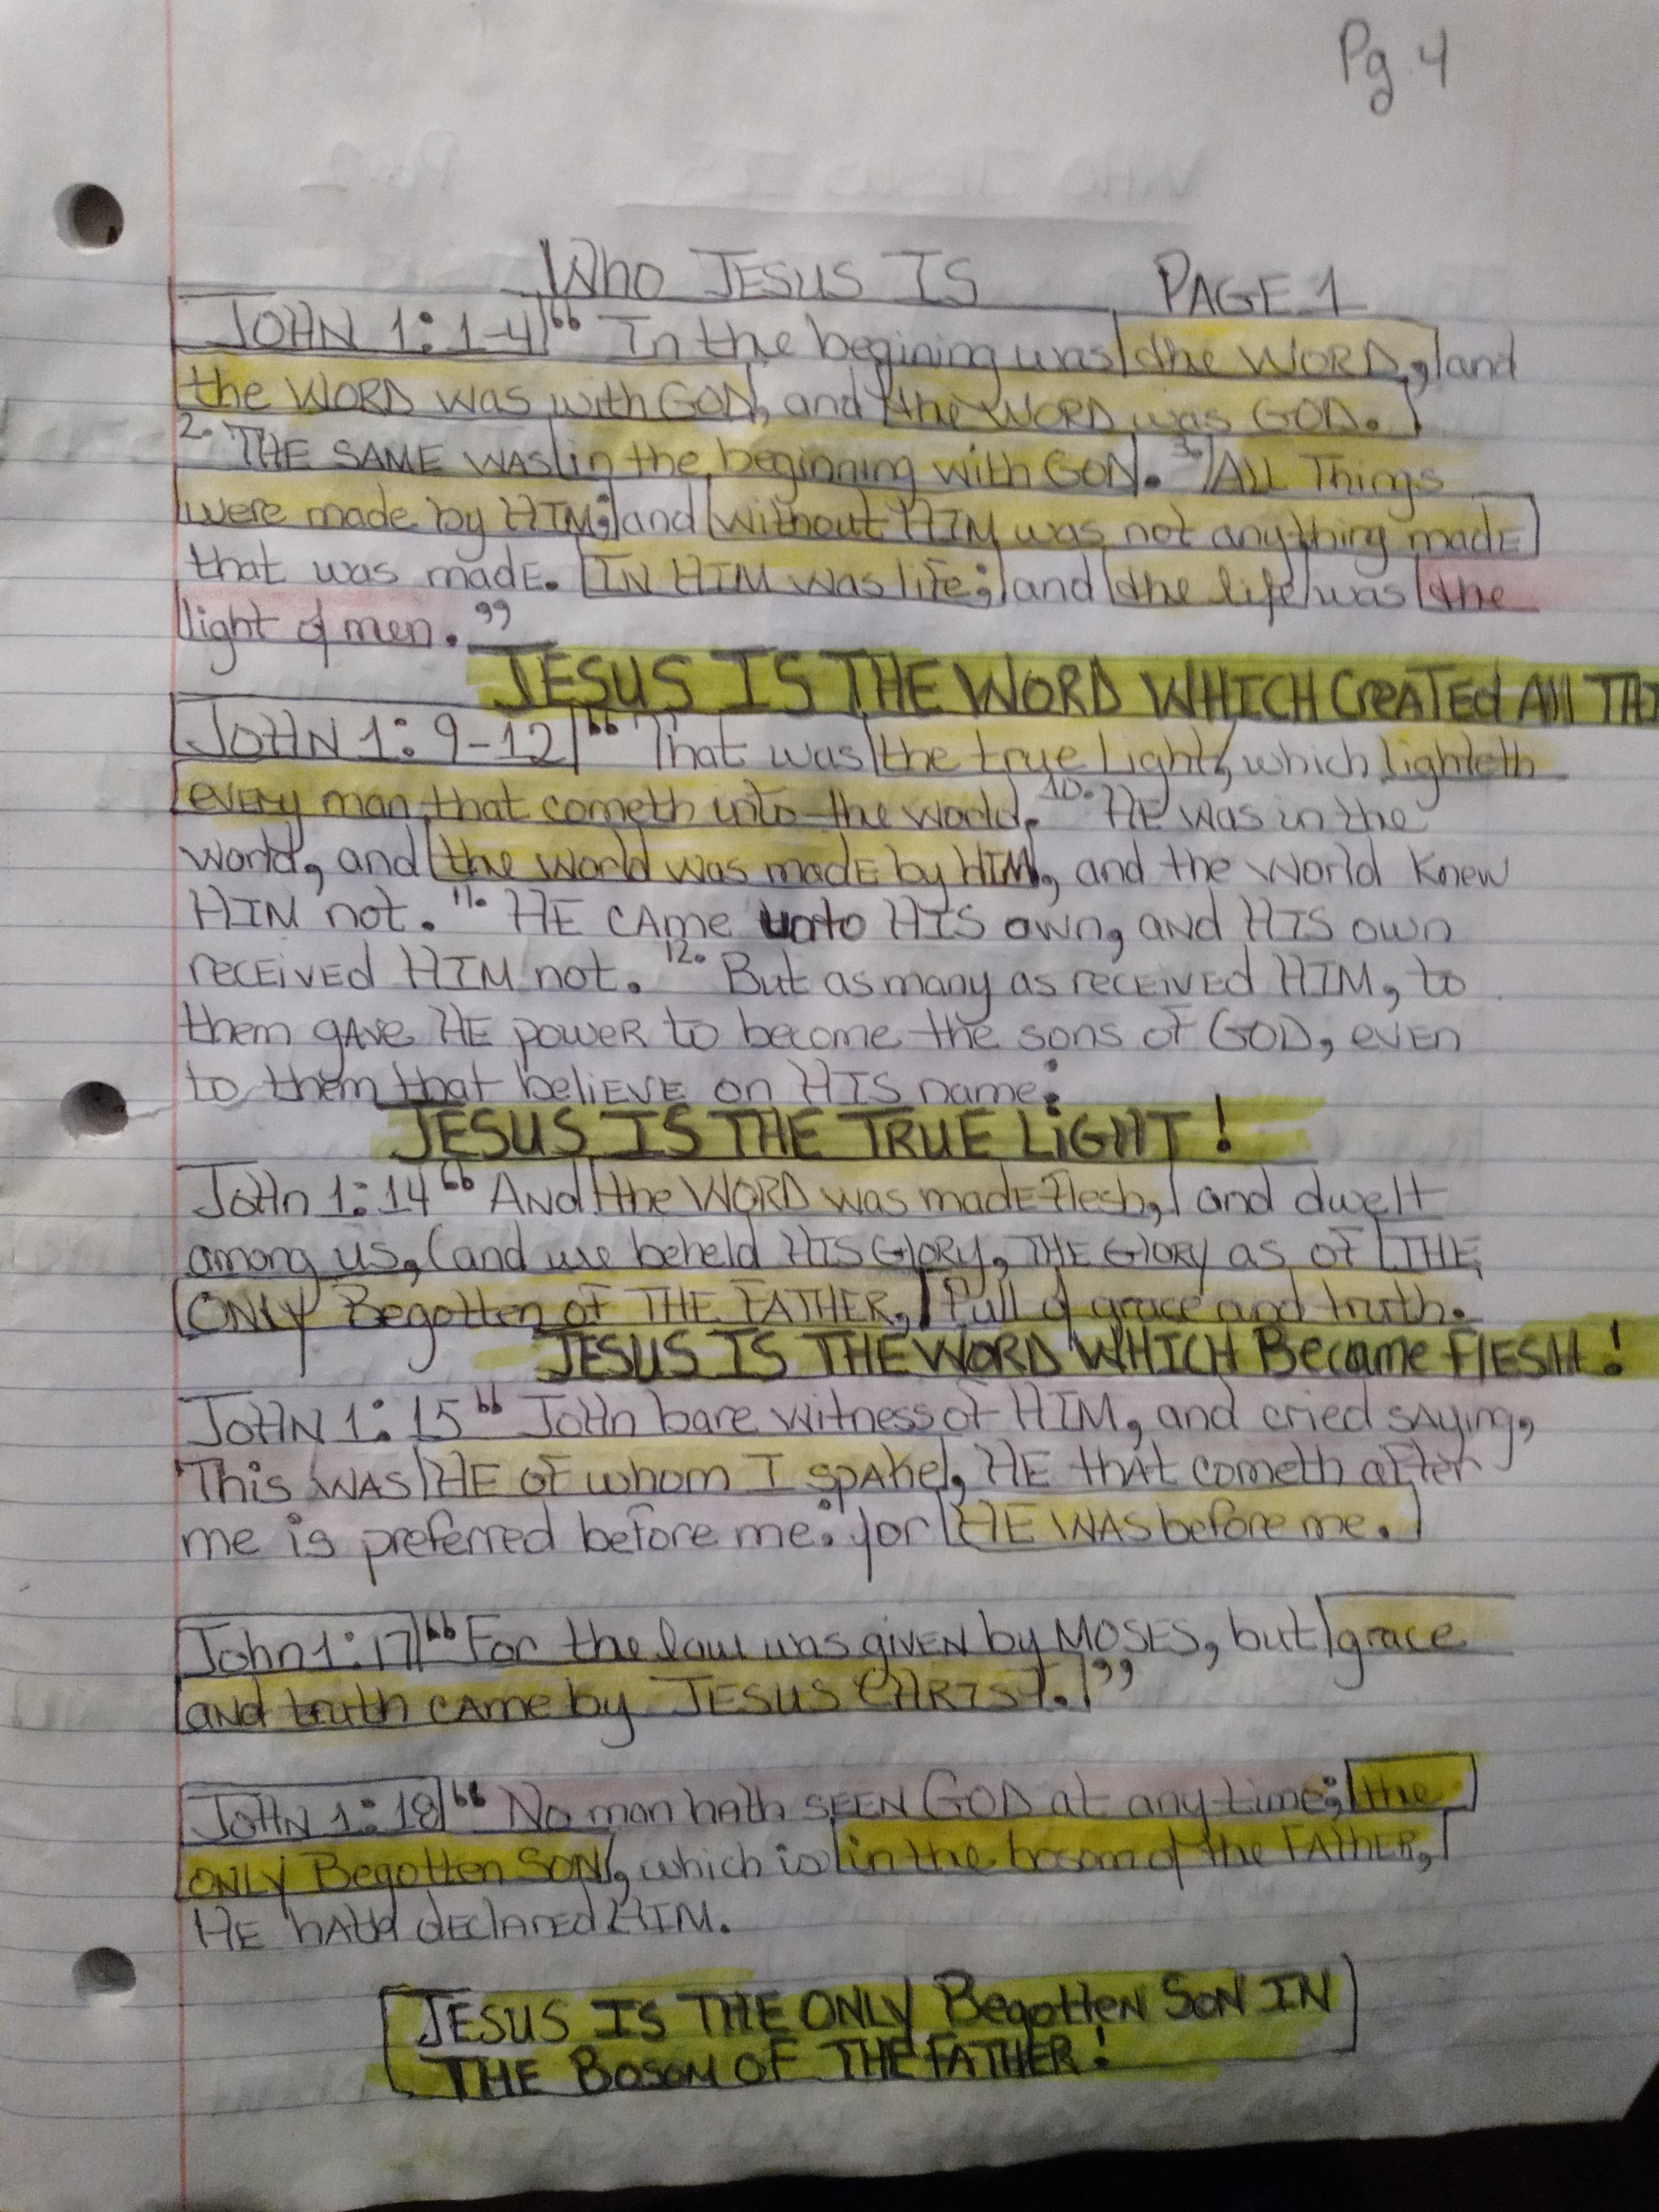 Pg 4
Who JESUS IS PAGE 1
JOHN 1:1-4 " In the begining was the WORD, and
the WORD was with GOD, and the WORD was GOD.
2. THE SAME WAS in the beginning with GOD. 3. ALL Things
were made by HIM; and without HIM was not anything made
that was made. IN HIM was life; and the life was the
light of men. "
JESUS IS THE WORD WHICH CreATed All THI
JOHN 1: 9-12 " That was the true Light, which lighteth
every man that cometh into the world. 10. HE was in the
world, and the world was made by HIM, and the world knew
HIM not. 11. HE CAme unto HIS own, AND HIS own
received HIM not. 12. But as many as received HIM, to
them gave HE power to become the sons of GOD, even
to them that believe on HIS name:
JESUS IS THE TRUE LiGHT!
John 1:14 " And the WORD was made flesh, and dwelt
among us, (and we beheld HIS GlORY, THE GlORY as of THE
ONLY Begotten of THE FATHER, full of grace and truth.
JESUS IS THE WORD WHICH Became FlESH!
JOHN 1:15 " John bare witness of HIM, and cried sAying,
This WAS HE of whom I spake, HE that cometh after
me is preferred before me: for HE WAS before me.
John 1:17 " For the law was given by MOSES, but grace
and truth came by JESUS CHRIST. "
JOHN 1:18 " No man hath SEEN GOD at any time; the
ONLY Begotten SON, which is in the bosom of the FATHER,
HE hath declared HIM.
JESUS IS THE ONLY Begotten SON IN
THE BOSOM OF THE FATHER!